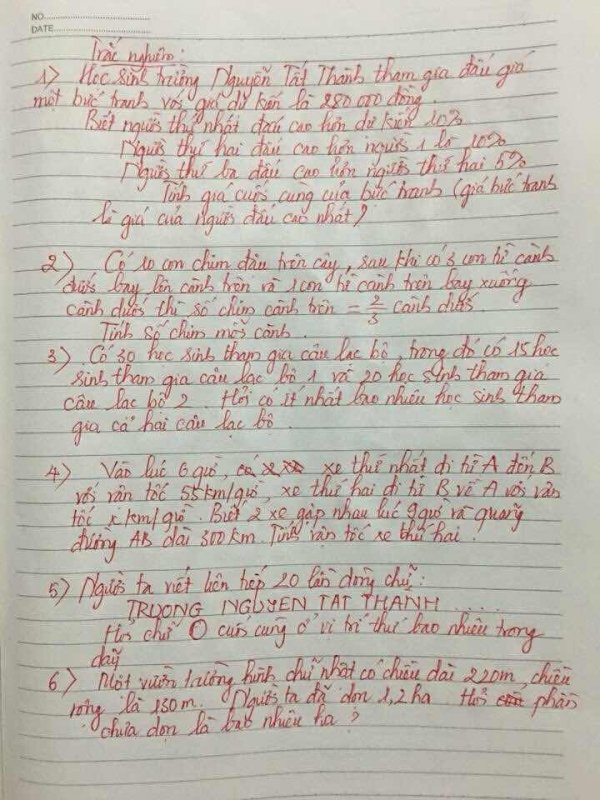 NO.
DATE
Trắc nghiệm:
1) Học sinh trường Nguyễn Tất Thành tham gia đấu giá
một bức tranh với giá dự kiến là 280 000 đồng.
Biết người thứ nhất đấu cao hơn dự kiến 10%
Người thứ hai đấu cao hơn người 1 là 10%
Người thứ ba đấu cao hơn người thứ hai 5%
Tính giá cuối cùng của bức tranh (giá bức tranh
là giá của người đấu cao nhất)
2) Có 10 con chim đậu trên cây, sau khi có 3 con từ cành
dưới bay lên cành trên và 1 con từ cành trên bay xuống
cành dưới thì số chim cành trên = 2/3 cành dưới.
Tính số chim mỗi cành.
3) Có 30 học sinh tham gia câu lạc bộ, trong đó có 15 học
sinh tham gia câu lạc bộ 1 và 20 học sinh tham gia
câu lạc bộ 2. Hỏi có ít nhất bao nhiêu học sinh tham
gia cả hai câu lạc bộ.
4) Vào lúc 6 giờ, xe thứ nhất đi từ A đến B
với vận tốc 55 km/giờ, xe thứ hai đi từ B về A với vận
tốc x km/giờ. Biết 2 xe gặp nhau lúc 9 giờ và quãng
đường AB dài 300 km. Tính vận tốc xe thứ hai.
5) Người ta viết liên tiếp 20 lần dòng chữ:
TRUONG NGUYEN TAT THANH ....
Hỏi chữ O cuối cùng ở vị trí thứ bao nhiêu trong
dãy
6) Một vườn trường hình chữ nhật có chiều dài 220m, chiều
rộng là 150m. Người ta đã dọn 1,2 ha Hỏi phần
chưa dọn là bao nhiêu ha?